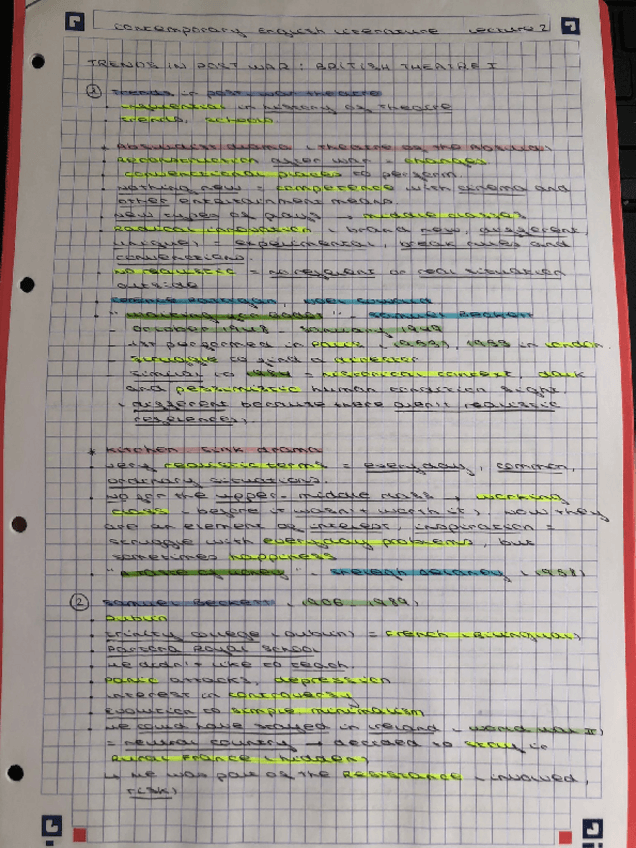 contemporary English literature Lecture 2
TRENDS IN POST WAR: BRITISH THEATRE I
1 Trends in post-war theatre
· in history of theatre
· trends, schools
* Absurdist drama (theatre of the absurd)
· Reconstruction after war = changes
· conventional places to perform
· nothing new = competence with cinema and
other entertainment means.
· new types of plays → middle classes
· Radical innovation (brand new, different,
unique) = experimental, break rules and
conventions
· no realistic = no relevant or real situation
outside
· Terence Rattigan, Noel Coward
· "Waiting for Godot" - Samuel Beckett
- October 1948 - January 1949
- 1st performed in Paris (1953), 1955 in London.
- struggle to find a director
- similar to = historical context, dark
and pessimistic human condition sight.
(different because there aren't realistic
references).
* Kitchen sink drama
· very realistic terms = everyday, common,
ordinary situations.
· no for the upper-middle class → working
class (before it wasn't worth it), now they
are an element of interest, inspiration =
struggle with everyday problems, but
sometimes happiness
· "A taste of honey" - Shelagh Delaney (1958)
2 Samuel Beckett (1906-1989)
· Dublin
· Trinity college (Dublin) = French (bilingual)
· Portora Royal School
· He didn't like to teach.
· Panic attacks, depression
· interest in controversy
· evolution to simple minimalism
· He could have stayed in Ireland (World War II)
= neutral country → decided to stay in
Rural France (hidden)
↳ He was part of the Resistance (involved,
risk)